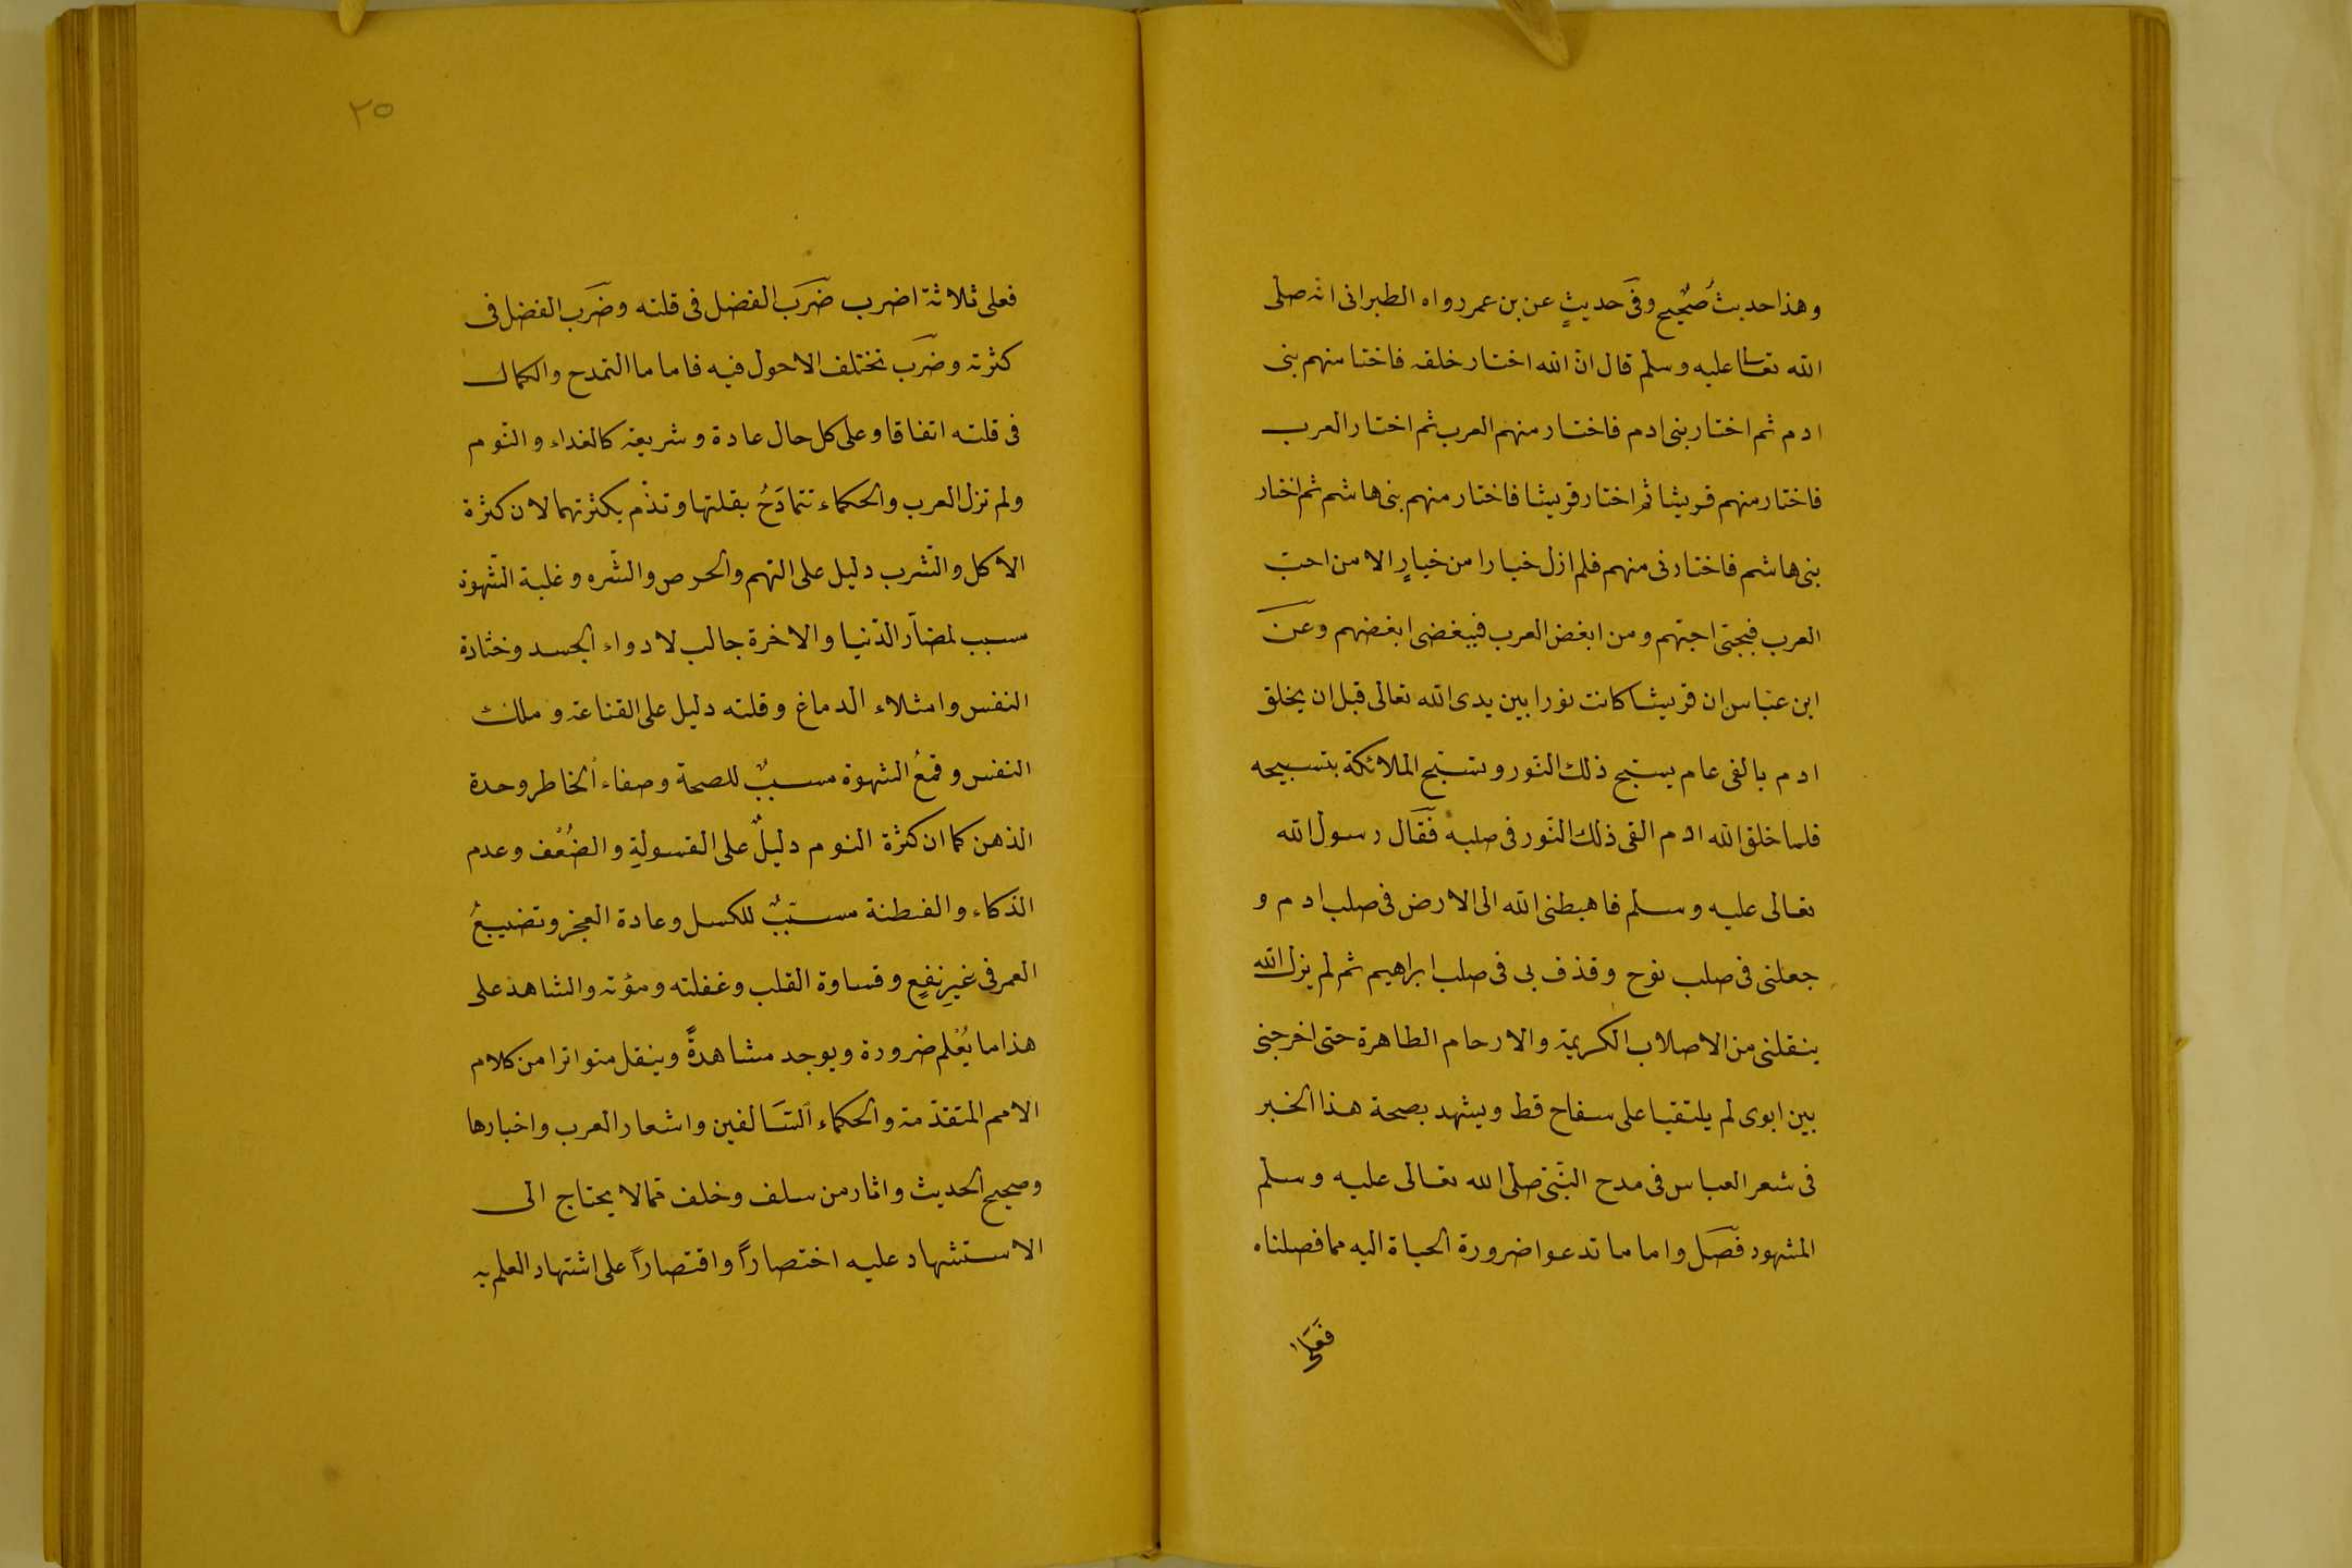 وهذا حديث صحيح وفى حديث عن بن عمر رواه الطبرانى انه صلى
الله تعا عليه وسلم قال ان الله اختار خلقه فاختا منهم بنى
ادم ثم اختار بنى ادم فاختار منهم العرب ثم اختار العرب
فاختار منهم قريشا ثم اختار قريشا فاختار منهم بنى هاشم ثم اختار
بنى هاشم فاختارنى منهم فلم ازل خيارا من خيارٍ الا من احب
العرب فبحبى احبهم ومن ابغض العرب فببغضى ابغضهم وعن
ابن عباس ان قريشا كانت نورا بين يدى الله تعالى قبل ان يخلق
ادم بالفى عام يسبح ذلك النور وتسبح الملائكة بتسبيحه
فلما خلق الله ادم القى ذلك النور فى صلبه فقال رسول الله
تعالى عليه وسلم فاهبطنى الله الى الارض فى صلب ادم و
جعلنى فى صلب نوح وقذف بى فى صلب ابراهيم ثم لم يزل الله
ينقلنى من الاصلاب الكريمة والارحام الطاهرة حتى اخرجنى
بين ابوى لم يلتقيا على سفاح قط ويشهد بصحة هذا الخبر
فى شعر العباس فى مدح النبى صلى الله تعالى عليه وسلم
المشهور فصل واما ما تدعوا ضرورة الحياة اليه مما فصلناه
فعلى
٢٥
فعلى ثلاثة اضرب ضرب الفضل فى قلته وضرب الفضل فى
كثرته وضرب تختلف الاحول فيه فاما ما التمدح والكمال
فى قلته اتفاقا وعلى كل حال عادة وشريعة كالغداء والنوم
ولم تزل العرب والحكماء تتمادَحُ بقلتها وتذم بكثرتهما لان كثرة
الاكل والشرب دليل على النهم والحرص والشره وغلبة الشهوة
سبب لمضار الدنيا والاخرة جالب لادواء الجسد وخثارة
النفس وامتلاء الدماغ وقلته دليل على القناعة وملك
النفس وقمعُ الشهوة سببٌ للصحة وصفاء الخاطر وحدة
الذهن كما ان كثرة النوم دليلٌ على الفسولةِ والضُعْف وعدم
الذكاء والفطنة سببٌ للكسل وعادة العجز وتضييعُ
العمر فى غيرِ نفعٍ وقساوة القلب وغفلته وموته والشاهد على
هذا ما يُعْلم ضرورة ويوجد مشاهدةً وينقل متواترا من كلام
الامم المتقدمة والحكماء السَالفين واشعار العرب واخبارها
وصحيح الحديث واثار من سلف وخلف مما لا يحتاج الى
الاستشهاد عليه اختصاراً واقتصاراً على اشتهار العلم به